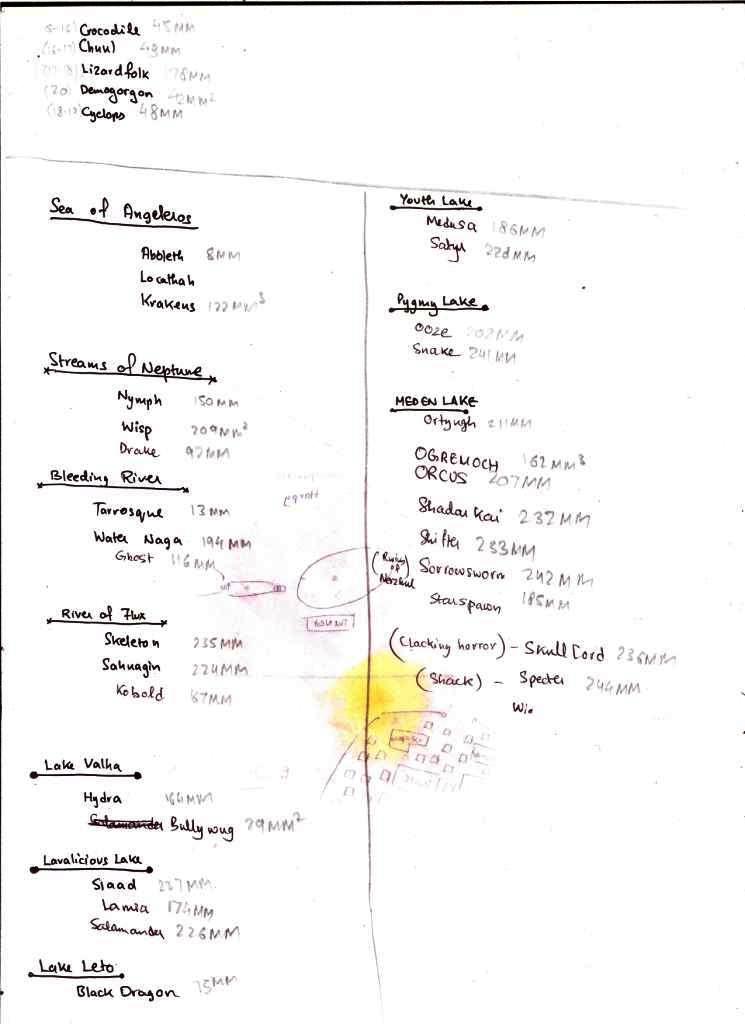 Crocodile 45MM
(16-17) Chuul 49MM
Lizardfolk 178MM
(20) Demogorgon 42MM²
(18-19) Cyclops 48MM
Sea of Angeleros
Aboleth 8MM
Locathah
Krakens 122MM³
Streams of Neptune
Nymph 150MM
Wisp 209MM²
Drake 92MM
Bleeding River
Tarrosque 13MM
Water Naga 194MM
Ghost 116MM
River of Flux
Skeleton 235MM
Sahuagin 224MM
Kobold 167MM
Lake Valha
Hydra 166MM
Bullywug 29MM²
Lavalicious Lake
Slaad 237MM
Lamia 174MM
Salamander 226MM
Lake Leto
Black Dragon 75MM
Youth Lake
Medusa 186MM
Satyr 228MM
Pygmy Lake
Ooze 202MM
Snake 241MM
MEDEN LAKE
Ortyugh 211MM
OGREMOCH 162MM³
ORCUS 207MM
Shadar Kai 232MM
Shifter 233MM
(Ruins of Nerzhul
Sorrowsworn 242MM
Starspawn 185MM
(Clacking horror) - Skull Lord 236MM
(Shack) - Specter 244MM